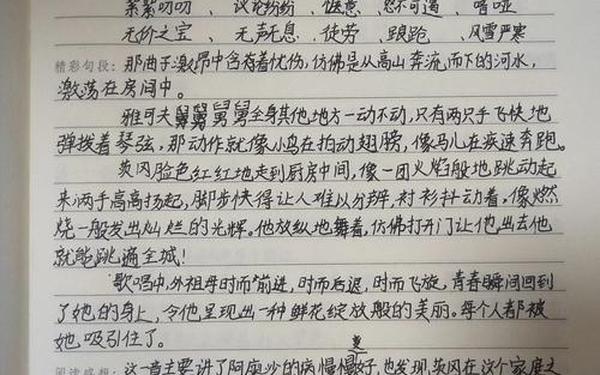 絮絮叨叨、议论纷纷、惬意、怒不可遏、嘈哑
无价之宝、无声无息、徒劳、踉跄、风雪严寒
精彩句段：那曲子激昂中含有着忧伤，仿佛是从高山奔流而下的河水，
激荡在房间中。
雅可夫舅舅舅舅全身其他地方一动不动，只有两只手飞快地
弹拨着琴弦，那动作就像小鸟在拍动翅膀，像马儿在疾速奔跑。
茨冈脸色红红地走到厨房中间，像一团火焰般地跳动起
来，两手高高扬起，脚步快得让人难以分辨，衬衫抖动着，像燃
烧一般发出灿烂的光辉。他放纵地舞着，仿佛打开门让他出去他
就能跳遍全城！
歌唱中，外祖母时而前进，时而后退，时而飞旋，青春瞬间回到
了她的身上，令他呈现出一种鲜花绽放般的美丽。每个人都被
她吸引住了。
阅读感想：这一章主要讲了阿廖沙的病慢慢变好，也发现茨冈在这个家庭之